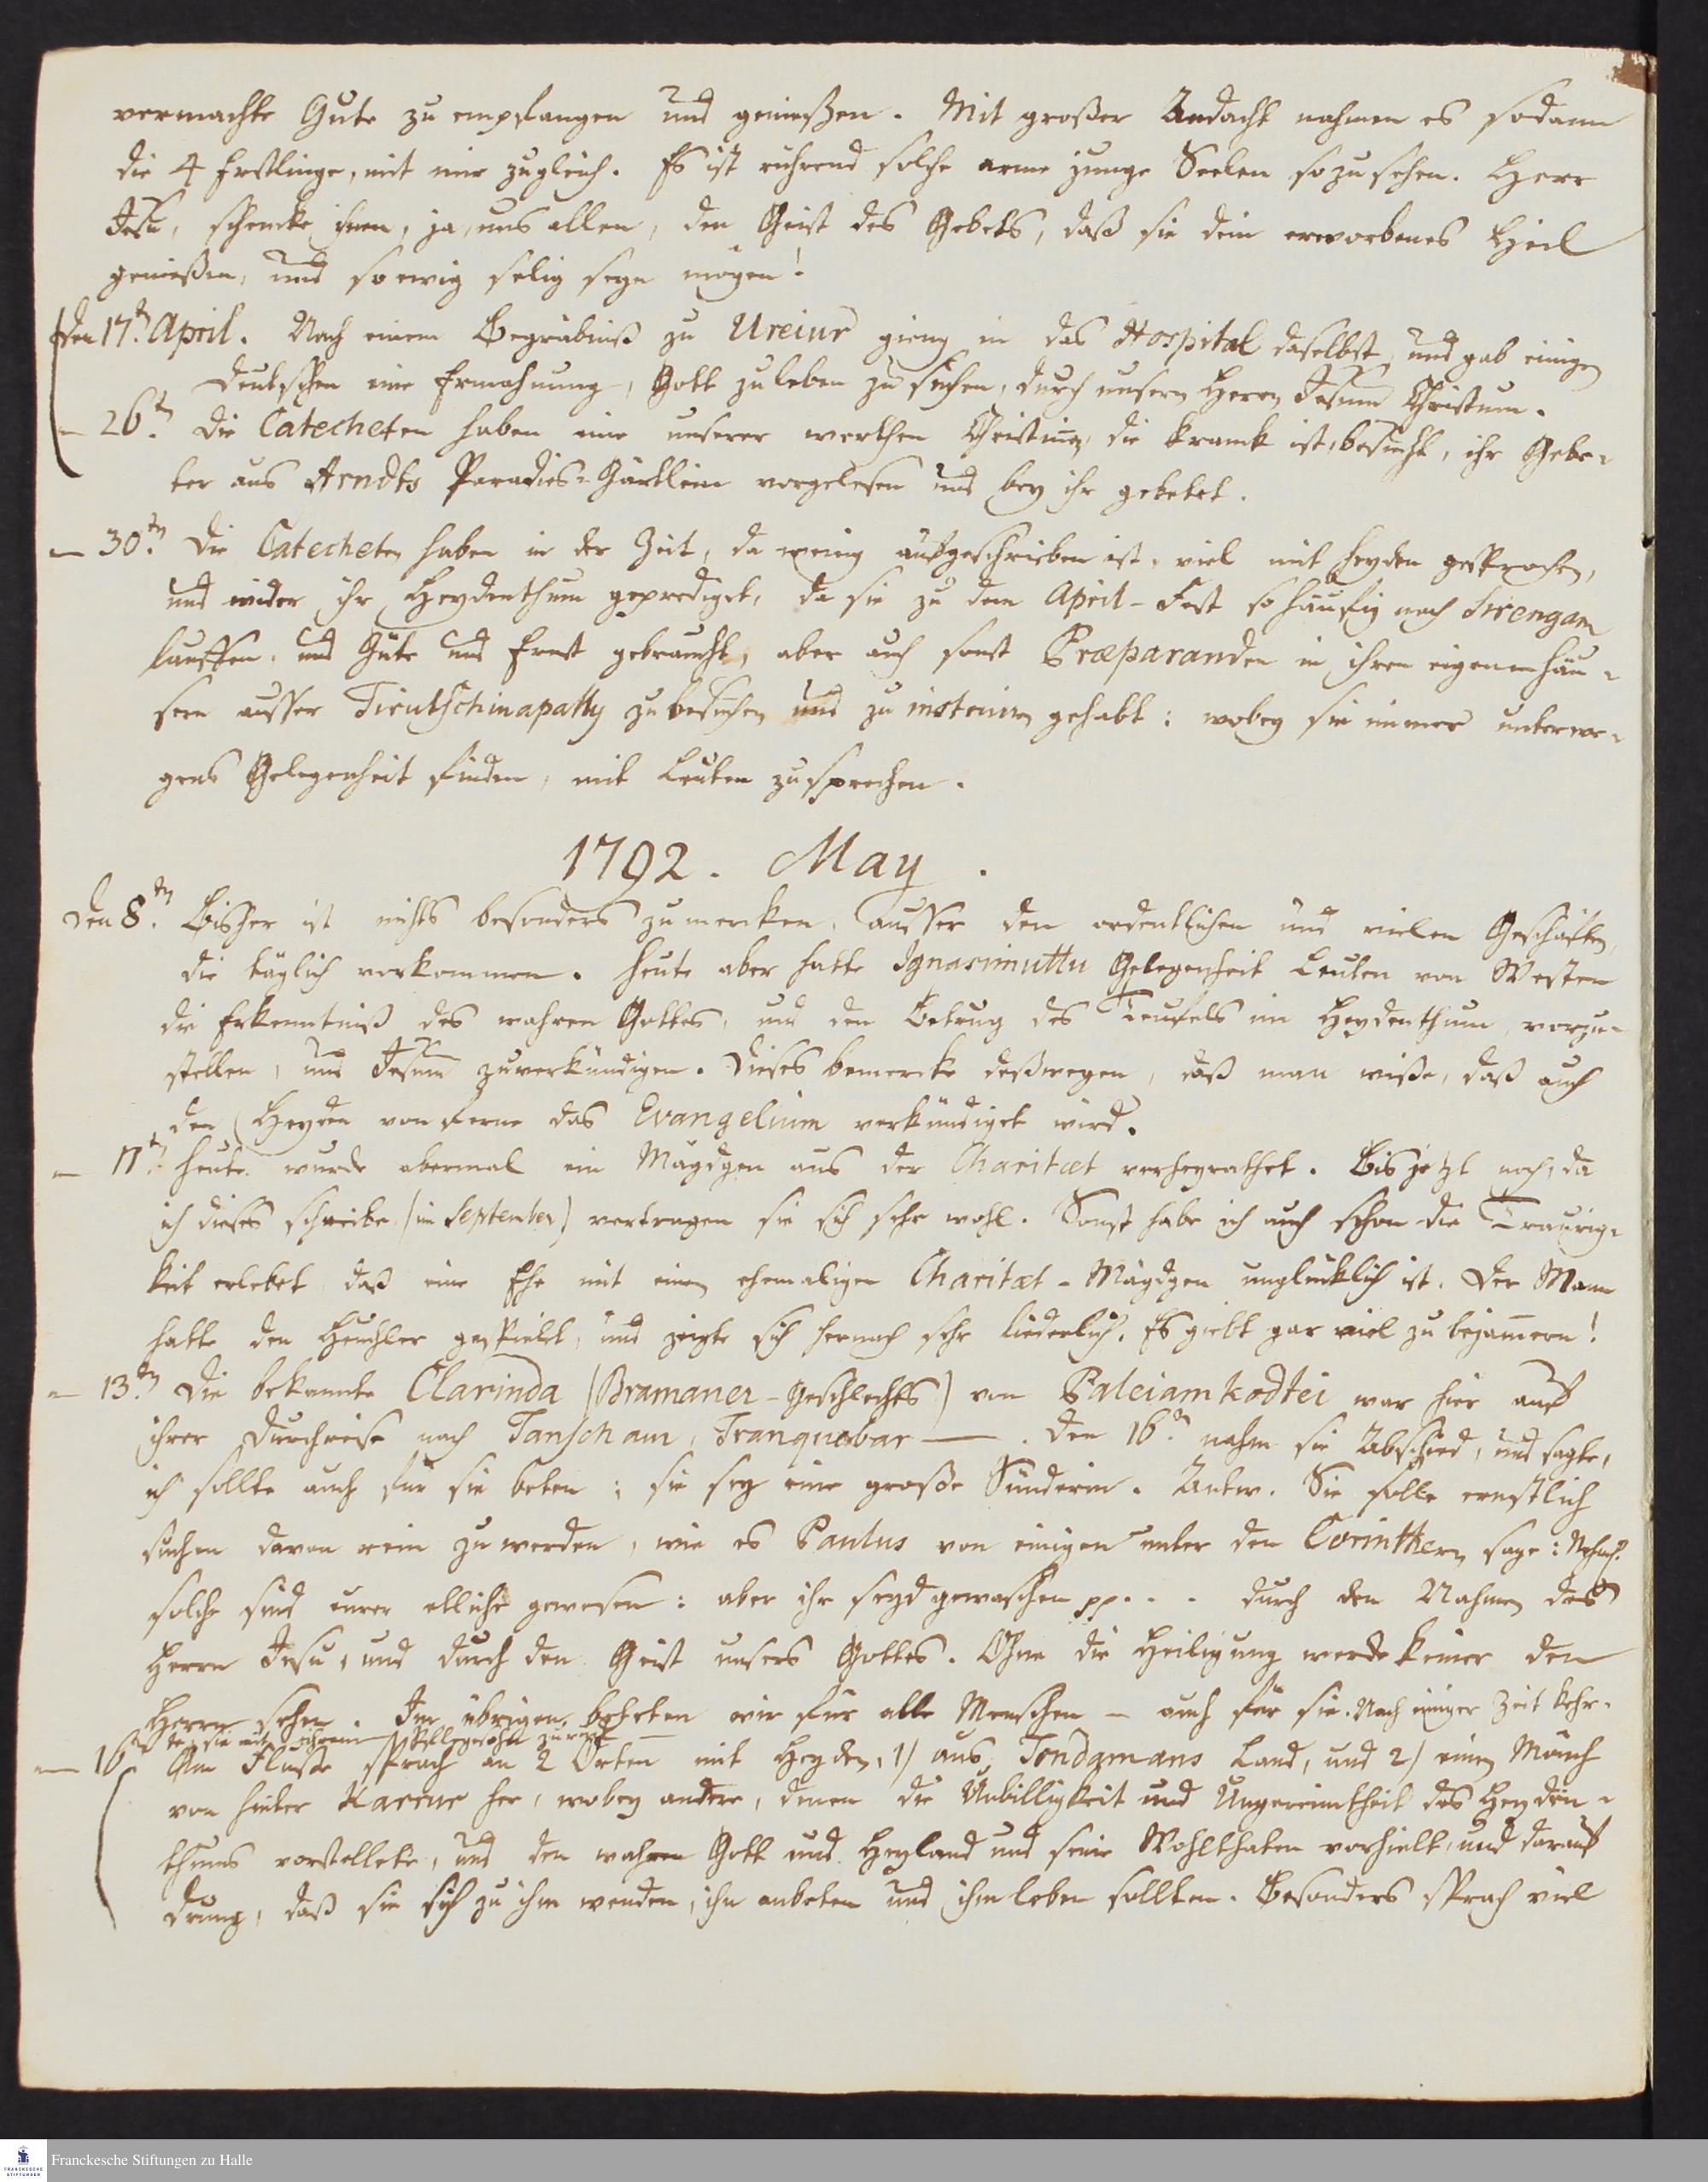 vermachte Gute zu empfangen und genießen. Mit großer Andacht nahmen es sodann
die 4 Erstlinge, mit mir zugleich. Es ist rührend solche arme junge Seelen so zu sehen. Herr
Jesu, schencke ihnen, ja, uns allen, den Geist des Gebets, daß sie dein erworbenes Heil
genießen, und so ewig selig seyn mögen!
den 17t. April. Nach einem Begräbniß zu Ureiur gieng in das Hospital daselbst, und gab einigen
Deutschen eine Ermahnung, Gott zu leben zu suchen, durch unsern Herrn Jesum Christum.
– 26t. Die Catecheten haben eine unserer werthen Christinnen, die kranck ist, besucht, ihr Gebe-
ter aus Arndts Paradies-Gärtlein vorgelesen und bey ihr gebetet.
– 30ten. Die Catecheten haben in der Zeit, da wenig aufgeschrieben ist, viel mit Heyden gesprochen,
und wider ihr Heydenthum geprediget, da sie zu dem April-Fest so häufig nach Sirengam
lauffen, und Güte und Ernst gebraucht, aber auch sonst Præparanden in ihren eigenen Häu-
sern ausser Tirutschinapally zu besuchen und zu instruiren gehabt: wobey sie immer unterwe-
gens Gelegenheit finden, mit Leuten zu sprechen.
1792. May.
den 8ten. Bisher ist nichts besonders zu mercken, ausser den ordentlichen und vielen Geschäften,
die täglich vorkommen. Heute aber hatte Ignasimuttu Gelegenheit Leuten von Westen
die Erkenntniß des wahren Gottes, und den Betrug des Teufels im Heydenthum, vorzu-
stellen, und Jesum zu verkündigen. Dieses bemercke deßwegen, daß man wiße, daß auch
den Heyden von ferne das Evangelium verkündiget wird.
– 11t. Heute wurde abermal ein Mägdgen aus der Charitæt verheyrathet. Bis jetzt noch, da
ich dieses schreibe (im September) vertragen sie sich sehr wohl. Sonst habe ich auch schon die Traurig-
keit erlebet, daß eine Ehe mit einem ehemaligen Charitæt-Mägdgen unglücklich ist. Der Mann
hatte den Heuchler gespielet, und zeigte sich hernach sehr liederlich. Es giebt gar viel zu bejammern!
– 13ten Die bekannte Clarinda (Bramaner-Geschlechts) von Paleiamkodtei war hier auf
ihrer Durchreise nach Tanschaur, Tranquebar —. Den 16t. nahm sie Abschied, und sagte,
ich sollte auch für sie beten; sie sey eine große Sünderin. Antw. Sie solle ernstlich
suchen davon rein zu werden, wie es Paulus von einigen unter den Corinthern sage:
solche sind eurer etliche gewesen: aber ihr seyd gewaschen pp. . . durch den Nahmen des
Herrn Jesu, und durch den Geist unsers Gottes. Ohne die Heiligung werde keiner den
Herrn sehen. Im übrigen beteten wir für alle Menschen – auch für sie. Nach einiger Zeit kehr-
te sie mit ihrem Pflegesohn zurück
– 16t Am Fluße sprach an 2 Orten mit Heyden, 1) aus Tondamans Land, und 2) einen Mönch
von hinter Karur her, wobey andere, denen die Unbilligkeit und Ungereimtheit des Heyden-
thums vorstellete, und den wahren Gott und Heyland und seine Wohlthaten vorhielt, und darauf
drung, daß sie sich zu ihm wenden, ihn anbeten und ihm leben sollten. Besonders sprach viel
Franckesche Stiftungen zu Halle